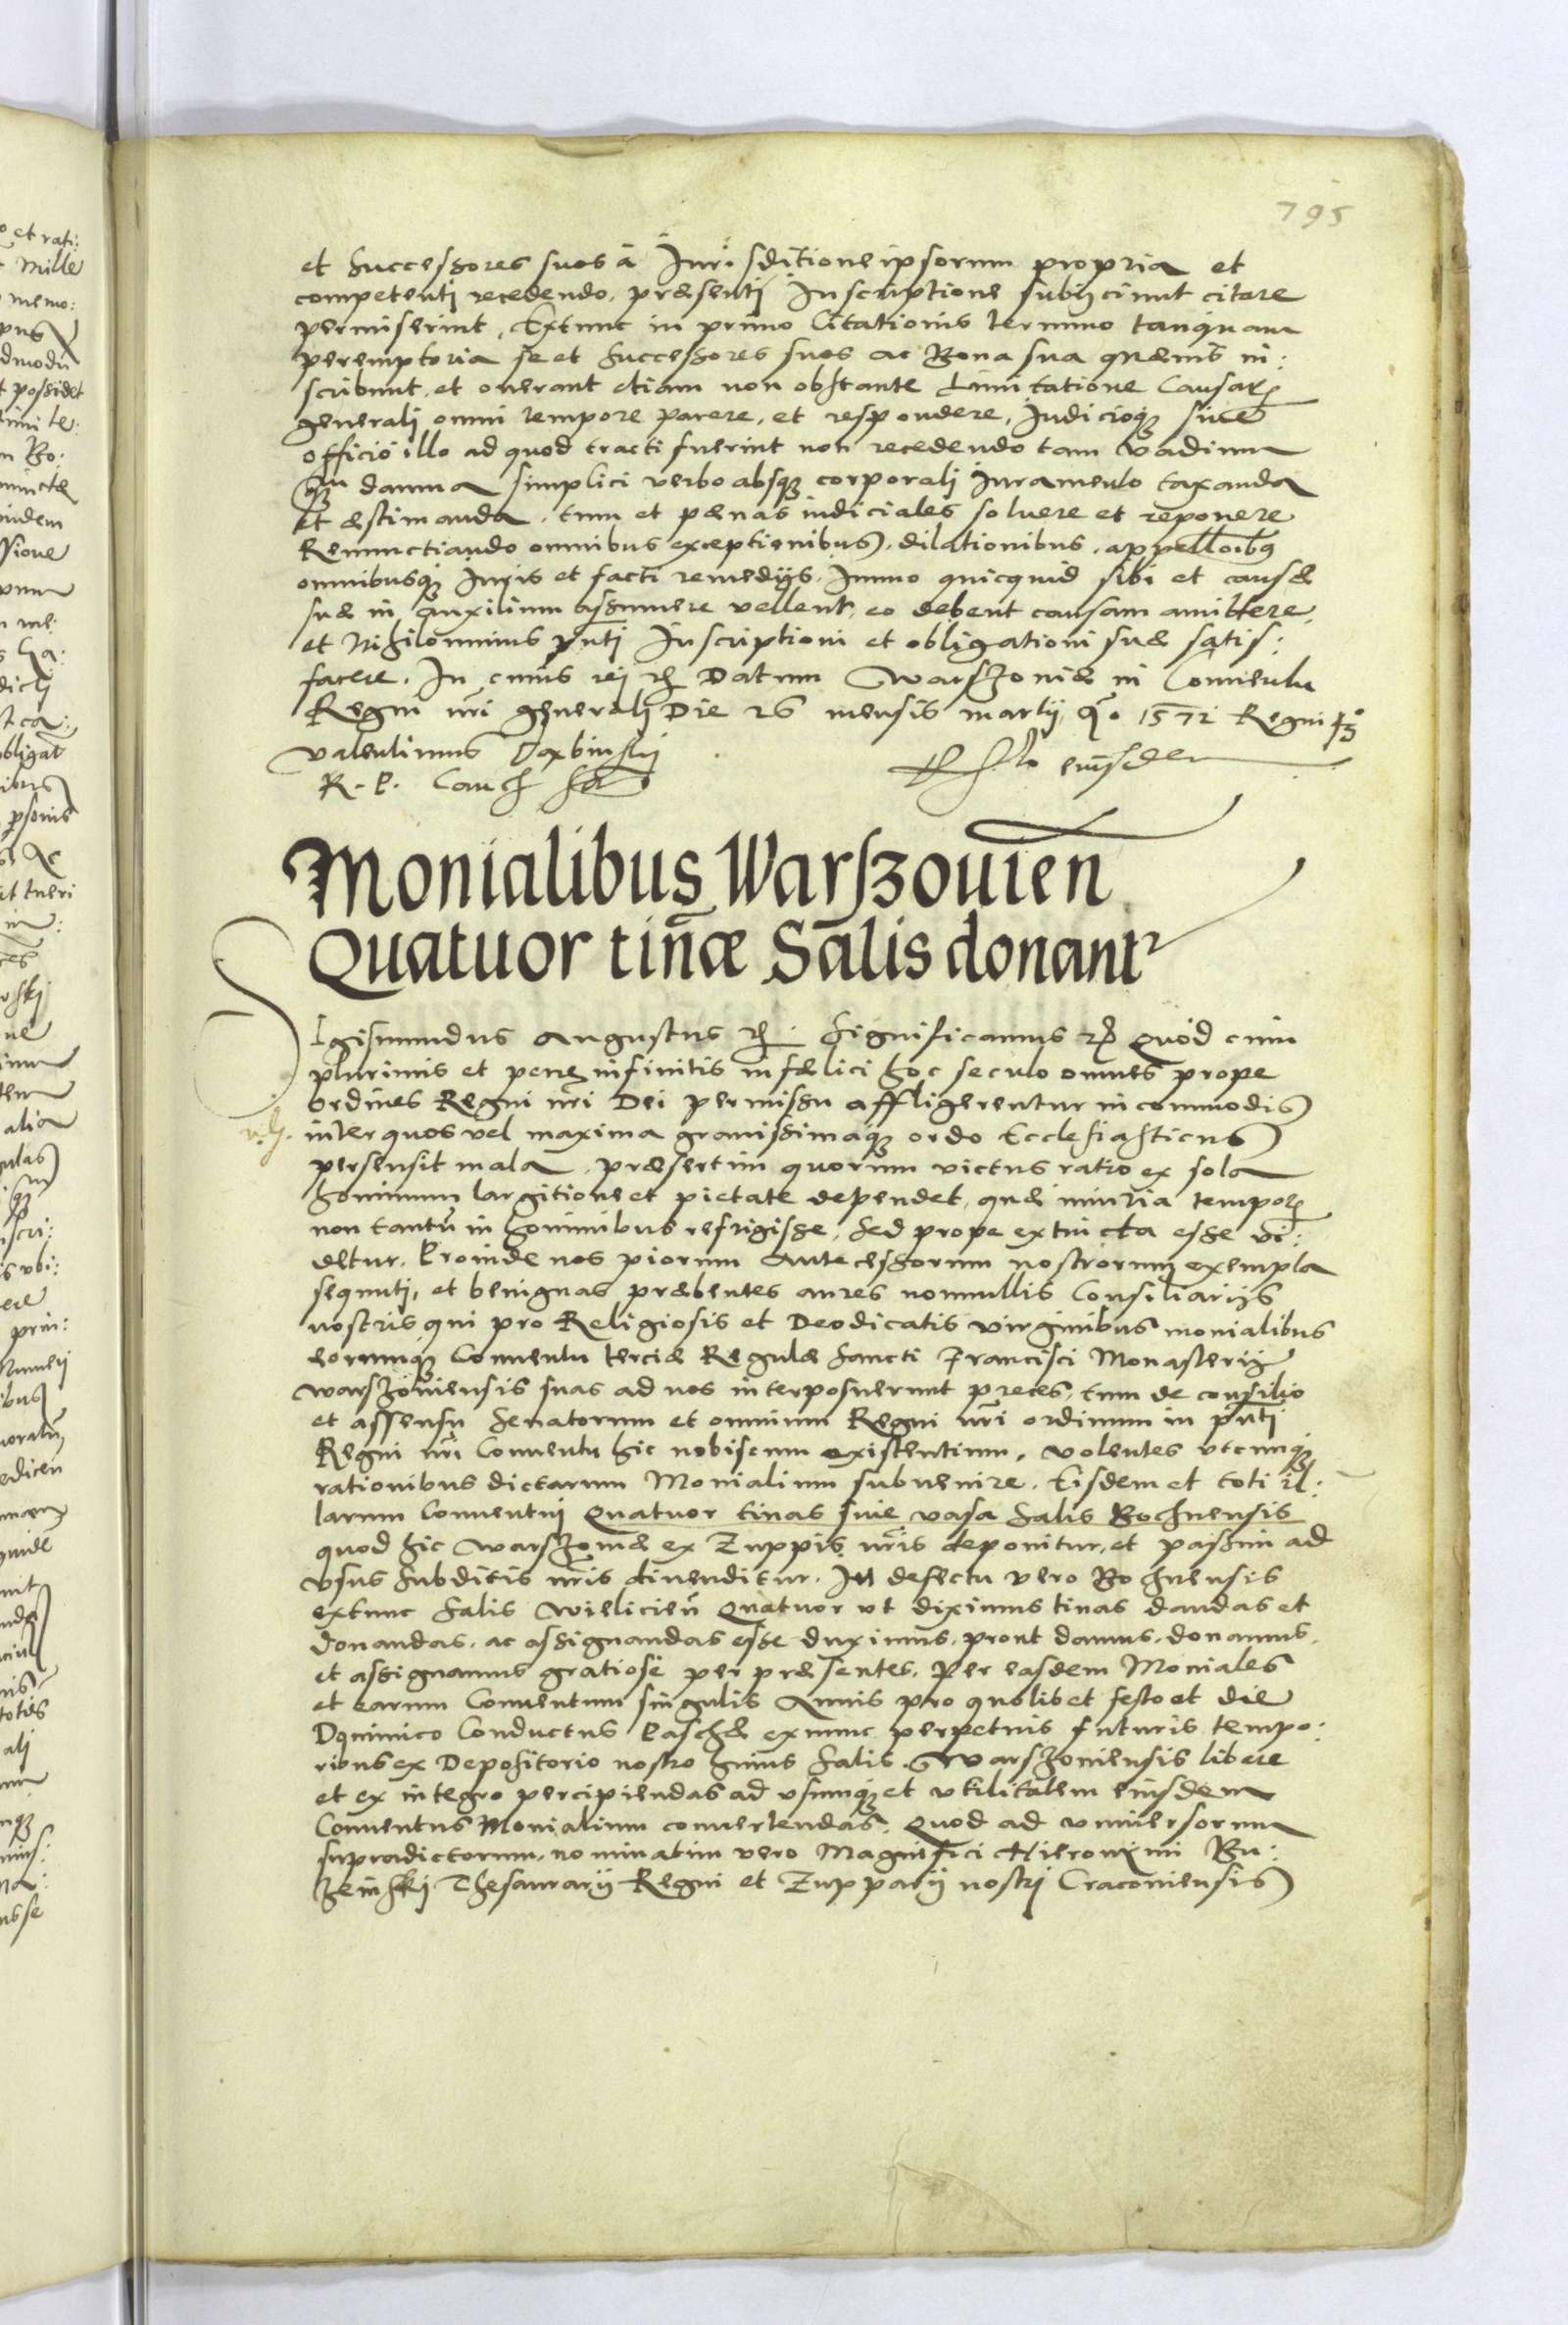 795
et Successores suos à Jurisditione ipsorum propria et
competenti recedendo, præsenti Inscriptione subijciunt citare
permiserint, Extunc in primo Citationis termino tanquam
peremptoria se et Successores suos ac Bona sua quæuis in:
scribunt, et onerant etiam non obstante Limitatione Causar
generali omni tempore parere, et respondere, Judicioque siue
officio illo ad quod tracti fuerint non recedendo tam vadium
qm damna simplici verbo absque corporali Juramento taxanda
et æstimanda, tum et pænas iudiciales soluere et reponere
Renunctiando omnibus exceptionibus, dilationibus, appellōibq
omnibusque Juris et facti remedijs, Immo quicquid sibi et causæ
suæ in auxilium assumere vellent, eo debent causam amittere,
et Nihilominus pñti Inscriptioni et obligationi suæ satis:
facere. In cuius rei etc Datum Warszouiæ in Conuentu
Regni nri generali Die 26 mensis martij, Ao 1572 Regni 43
Valentinus Daxbinskij
R. P. Canc
eiusdem
Monialibus Warszouien
Quatuor tinæ Salis donant
Sigismundus Augustus etc Significamus etc Quod cum
plurimis et pene infinitis infælici hoc seculo omnes prope
ordines Regni nri Dei permissu affligerentur incommodis
inter quos vel maxima grauissimaque ordo Ecclesiasticus
persensit mala, præsertim quorum victus ratio ex sola
hominum largitione et pietate dependet, quæ iniuria tempor
non tantū in hominibus refrigisse, sed prope extincta esse vi:
detur. Proinde nos piorum Antecessorum nostrorum exempla
sequuti, et benignas præbentes aures nonnullis Consiliarijs
nostris qui pro Religiosis et Deodicatis virginibus monialibus
eorumque Conuentu terciæ Regulæ Sancti Francisci Monasterij
warszouiensis suas ad nos interposuerunt preces, tum de consilio
et assensu Senatorum et omnium Regni nri ordinum in pñti
Regni nri Conuentu hic nobiscum existentium, volentes vtcunque
rationibus dictarum Monialium subuenire, Eisdem et toti il:
larum Conuentui Quatuor tinas siue vasa Salis Bochnensis
quod hic Warszouiæ ex Zuppis nris deponitur, et passim ad
vsus Subditis nris diuenditur. In defectu vero Bochnensis
extunc Salis Wieliciēn Quatuor vt diximus tinas dandas et
donandas, ac assignandas esse duximus, prout damus, donamus,
et assignamus gratiosè per præsentes. Per easdem Moniales
et earum Conuentum singulis Annis pro quolibet festo et die
Dominico Conductus Paschæ exnunc perpetuis futuris tempo:
ribus ex Depositorio nostro huius Salis Warszouiensis libere
et ex integro percipiendas ad vsumque et vtilitatem eiusdem
Conuentus Monialium conuertendas. Quod ad vniuersorum
supradictorum, nominatim vero Magnifici Hieronimi Bu:
zeinski Thesaurarij Regni et Zupparij nostri Cracouiensis